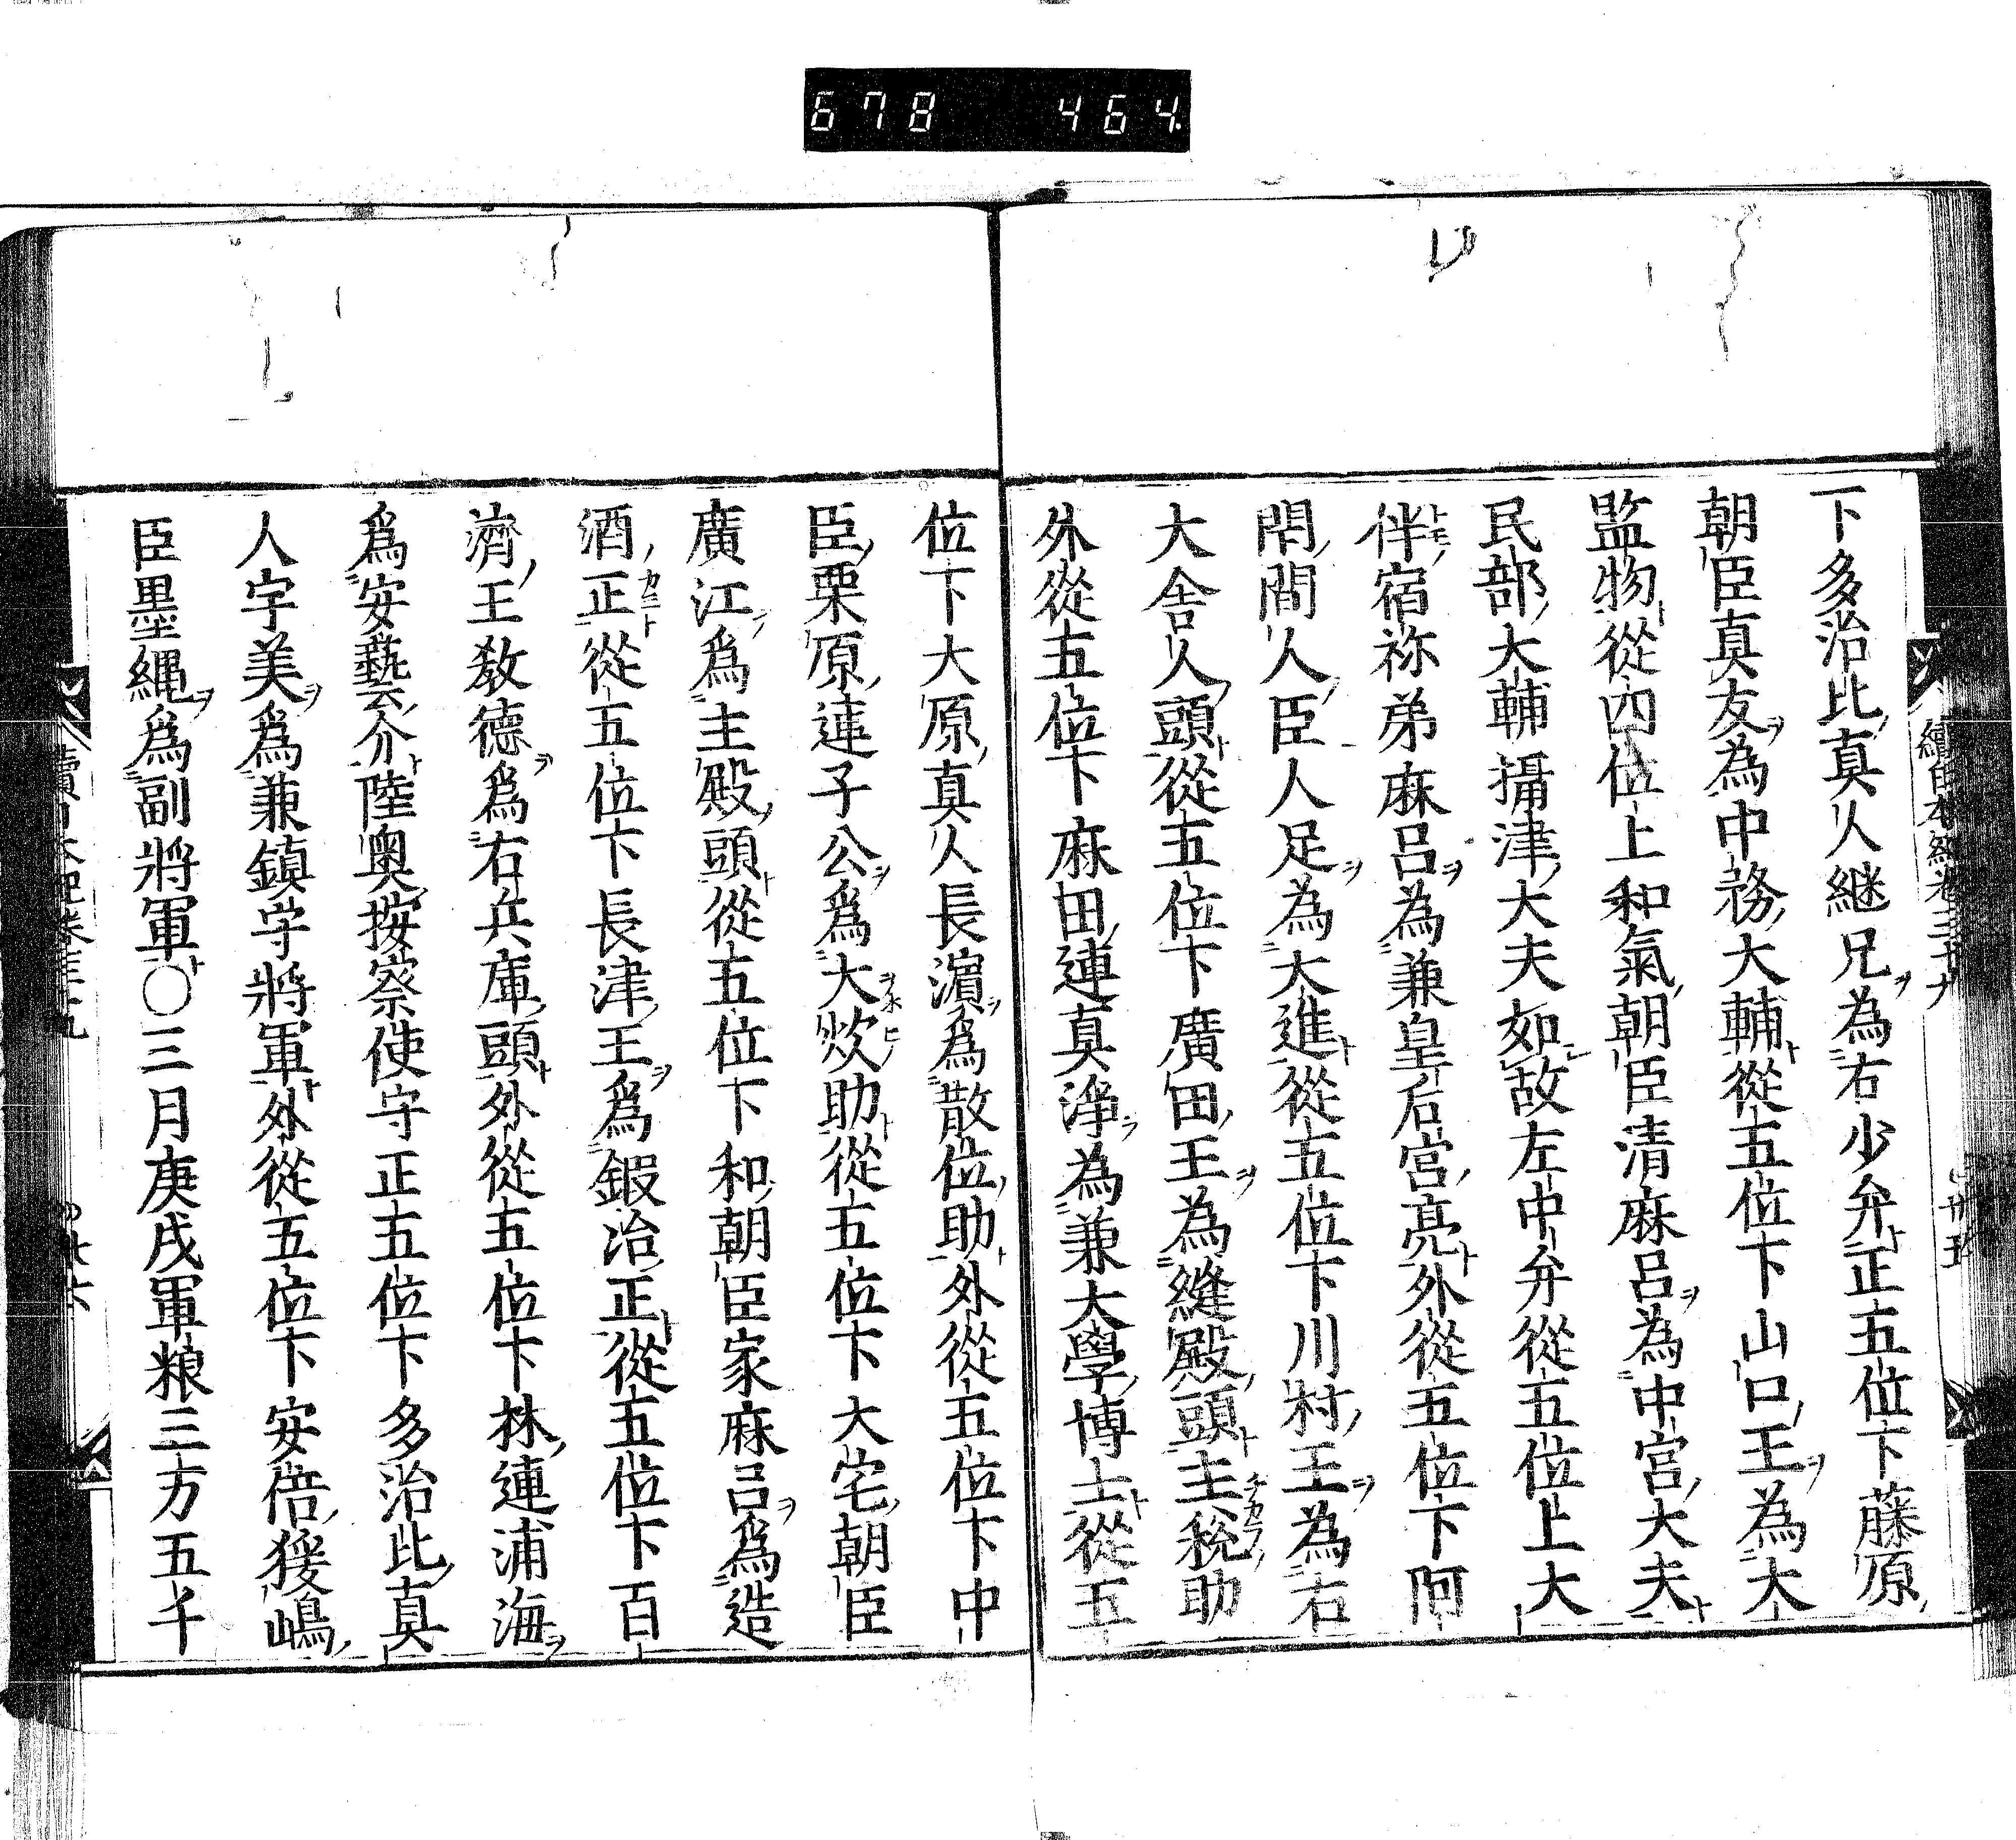 678 464
下多治比真人継兄為右少弁正五位下藤原
朝臣真友為中務大輔從五位下山口王為大
監物從四位上和氣朝臣清麻呂為中宮大夫
民部大輔攝津大夫如故左中弁從五位上大
伴宿祢弟麻呂為兼皇后宮亮外從五位下阿
閇間人臣人足為大進從五位下川村王為右
大舍人頭從五位下廣田王為縫殿頭主税助
外從五位下麻田連真淨為兼大學博士從五
位下大原真人長濵爲散位助外從五位下中
臣栗原連子公爲大炊助從五位下大宅朝臣
廣江爲主殿頭從五位下和朝臣家麻呂爲造
酒正從五位下長津王爲鍜冶正從五位下百
濟王教德爲右兵庫頭外從五位下林連浦海
爲安藝介陸奥按察使守正五位下多治比真
人宇美爲兼鎮守將軍外從五位下安倍猨嶋
臣墨縄爲副將軍〇三月庚戌軍粮三万五千